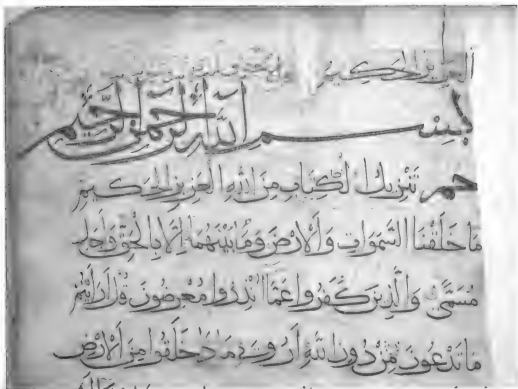 العزيز الحكيم
بسم الله الرحمن الرحيم
حم تنزيل الكتاب من الله العزيز الحكيم
ما خلقنا السموات والارض وما بينهما الا بالحق واجل
مسمى والذين كفروا عما انذروا معرضون قل ارايتم
ما تدعون من دون الله اروني ماذا خلقوا من الارض